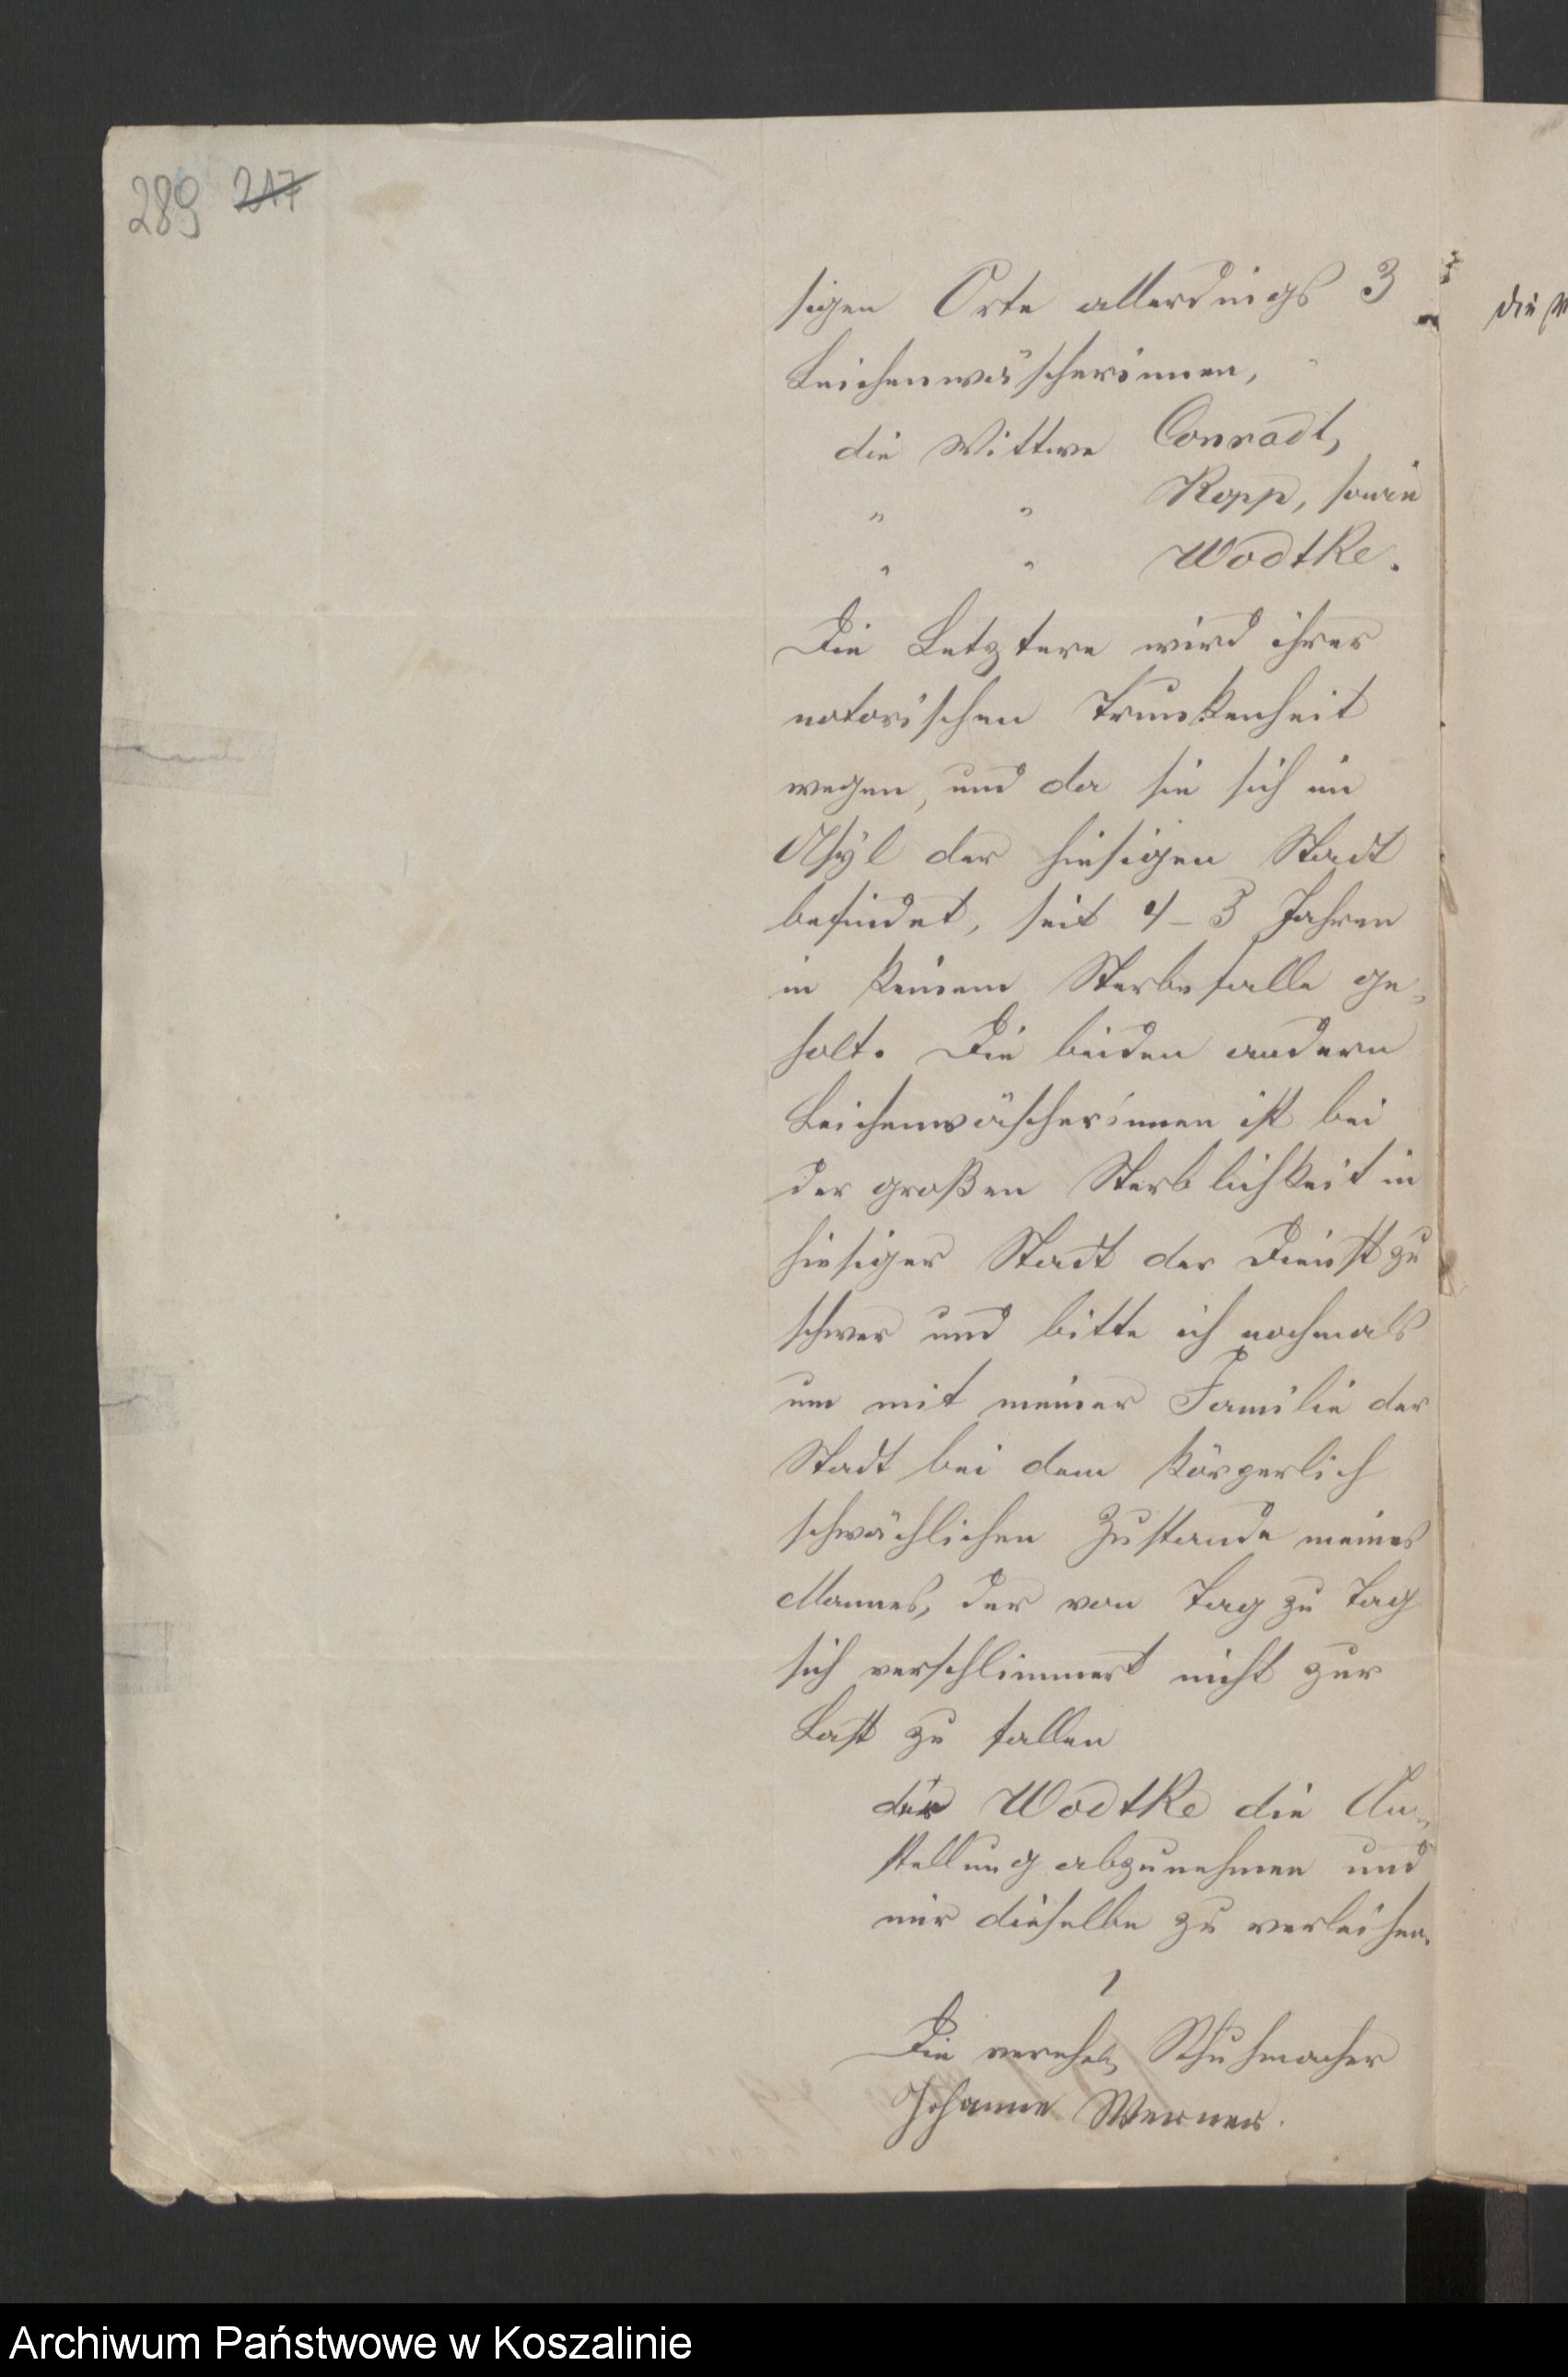 289 217
sigen Orte allerdings 3
Leichenwäscherinnen,
die Wittwe Conradt,
" " Kopp, sowie
" " Wodtke.
Die Letztere wird ihrer
notorischen Trunkenheit
wegen, und da sie sich im
Asÿl der hiesigen Stadt
befindet, seit 4-5 Jahren
in keinem Sterbefalle ge-
holt. Die beiden andern
Leichenwäscherinnen ist bei
der großen Sterblichkeit in
hiesiger Stadt der Dienst zu
schwer und bitte ich nochmals
um mit meiner Familie der
Stadt bei dem körperlich
schwächlichen Zustande meines
Mannes, der von Tag zu Tag
sich verschlimmert nicht zur
Last zu fallen
der Wodtke die An-
stellung abzunehmen und
mir dieselbe zu verleihen.
Die verehel. Schuhmacher
Johanne Werner.
Archiwum Państwowe w Koszalinie